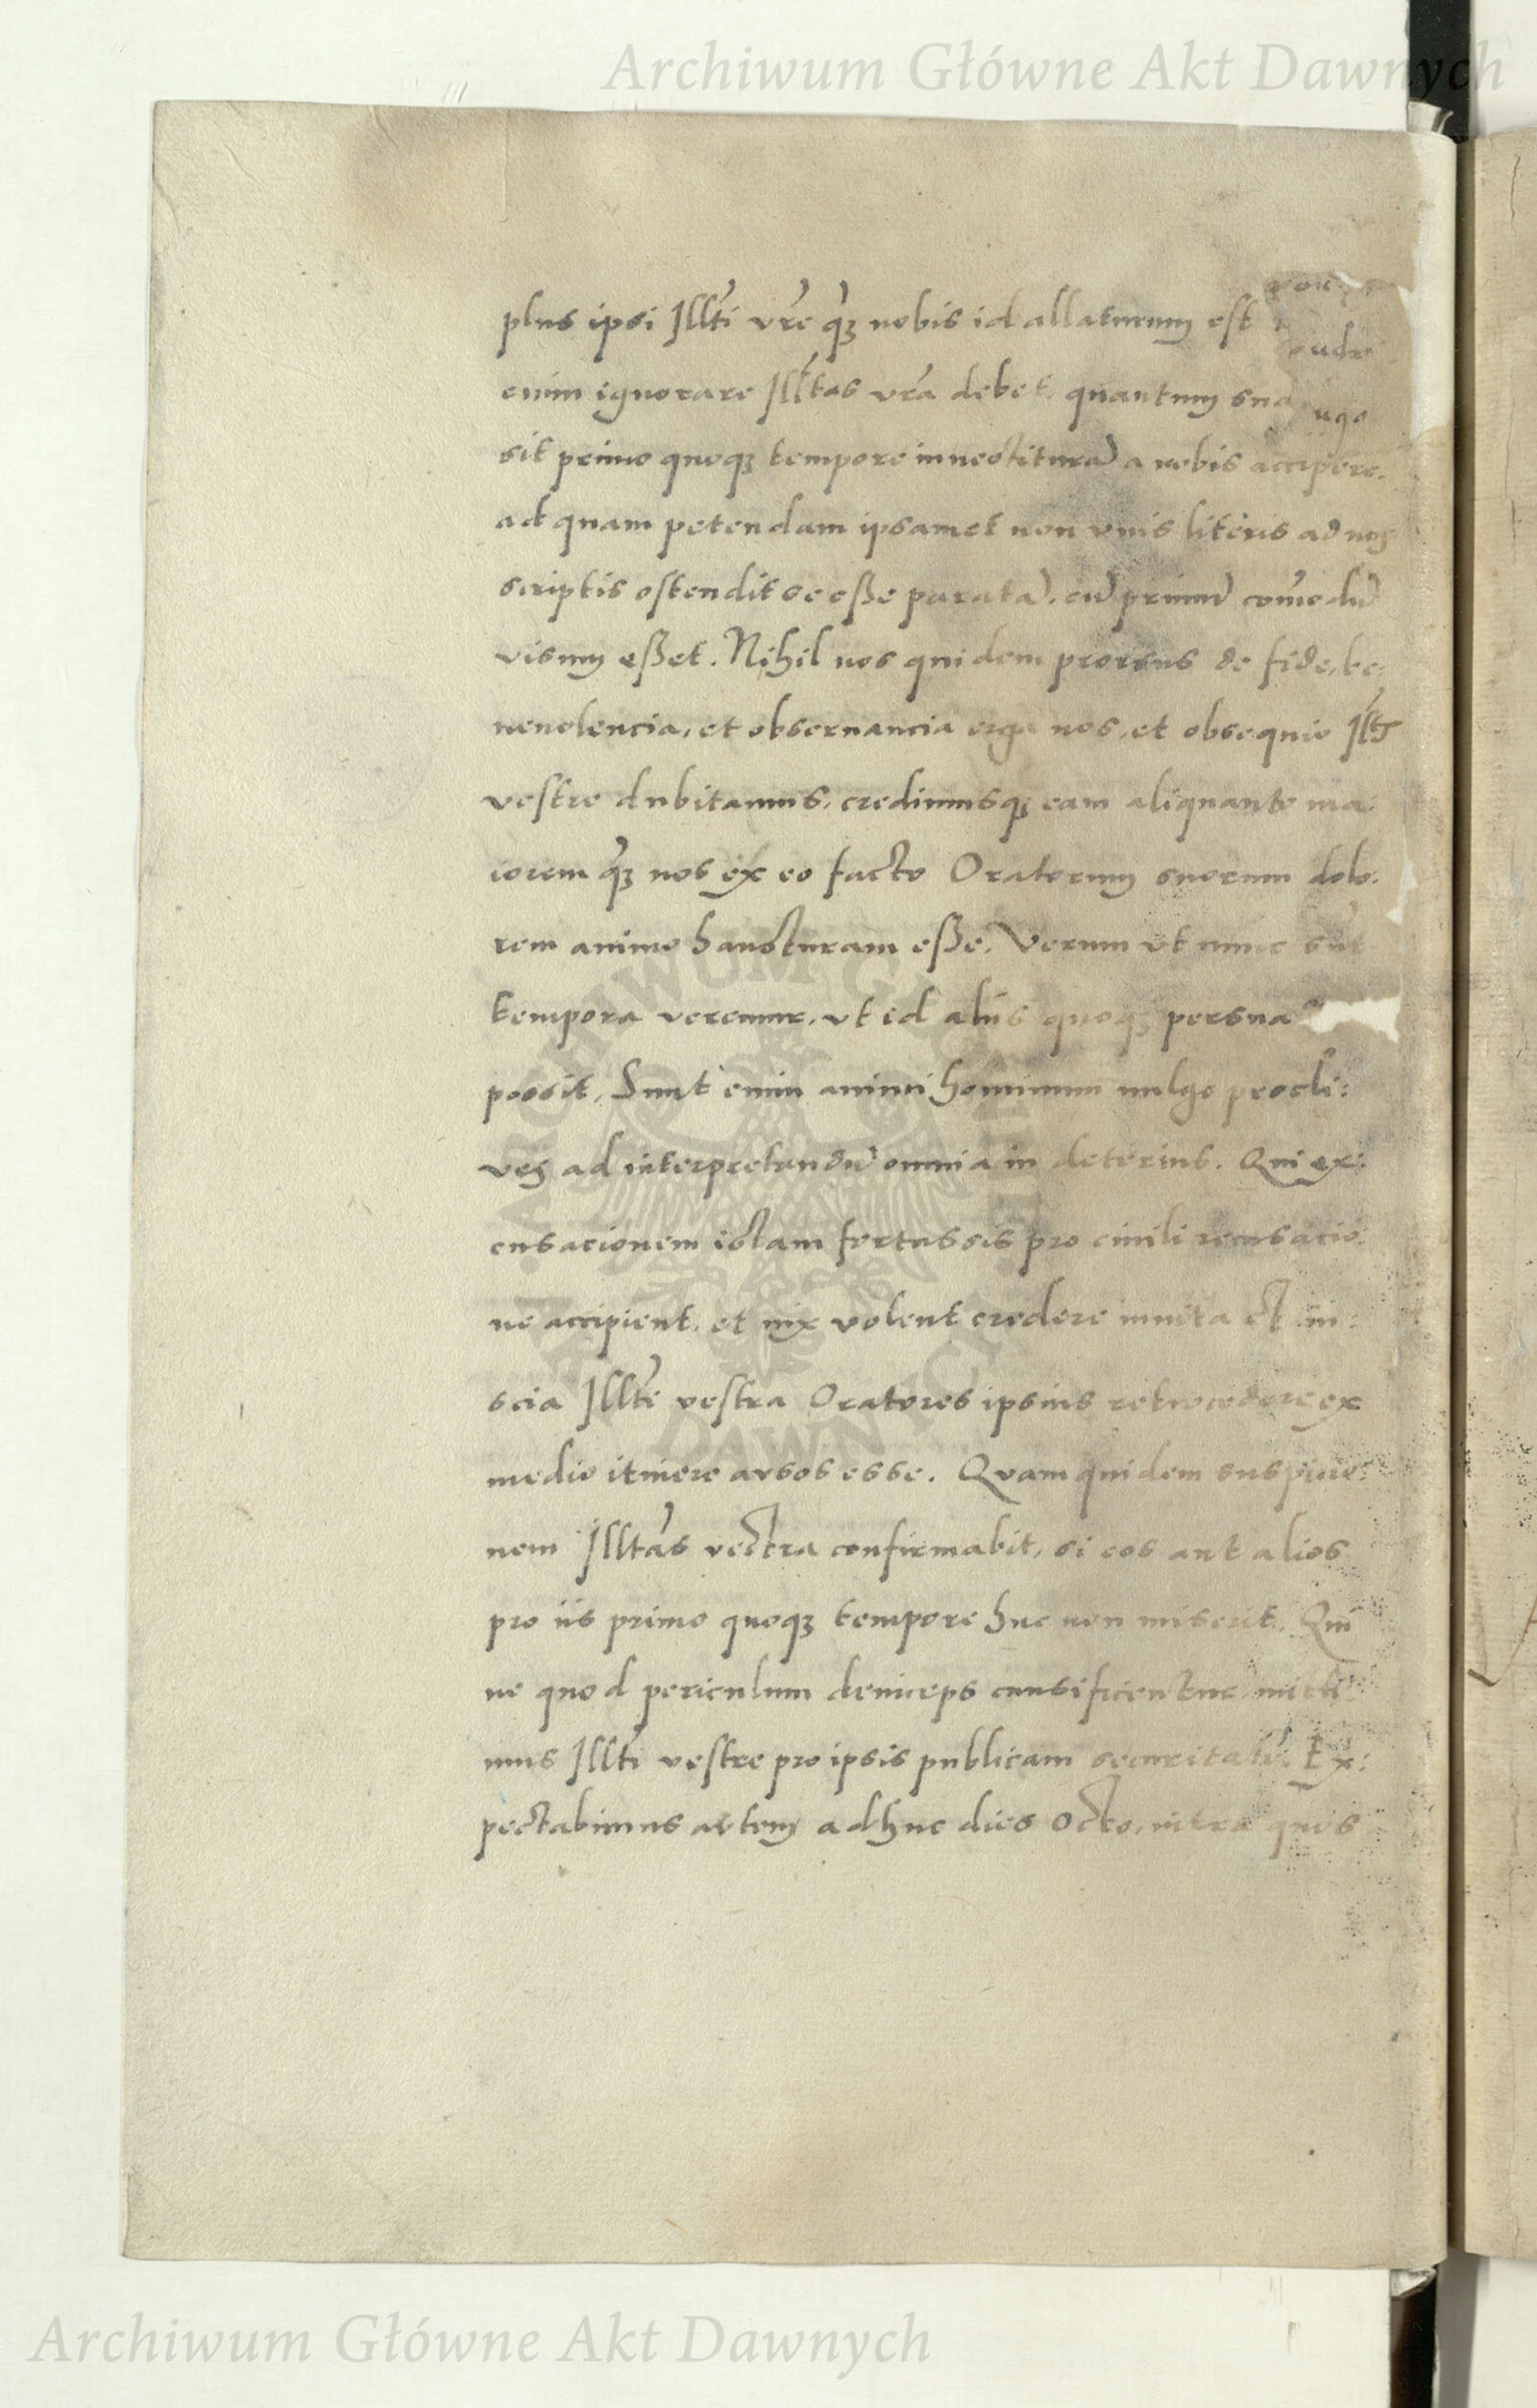 Archiwum Główne Akt Dawnych
plus ipsi Illti vre q̃3 nobis id allaturum est
enim ignorare Illtas vra debet, quantum sua
sit primo quoq3 tempore inuestiturã a nobis accipere.
ad quam petendam ipsamet non vnis literis ad nos
scriptis ostendit se eße paratã. cũ primũ com̃odũ
visum eßet. Nihil nos quidem prorsus de fide, be:
neuolencia, et obseruancia erga nos, et obsequio Illt
vestre dubitamus, credimusq3 eam aliquanto ma:
iorem q̃3 nos ex eo facto Oratorum suorum dolo:
rem animo hausturam eße. Verum vt nunc sũt
tempora veremur, vt id aliis quoq3 persua
possit, Sunt enim animi hominum uulgo procli:
ues ad interpretandũ omnia in deterius. Qui ex:
cusacionem istam fortassis pro ciuili recusacio:
ne accipient, et uix volent credere inuita et in:
scia Illti vestra Oratores ipsius retrocedere ex
medio itinere ausos esse. Quam quidem suspicio:
nem Illtas vestra confirmabit, si eos aut alios
pro iis primo quoq3 tempore huc non miserit. Qui
ne quod periculum deinceps causificentur, mitti
mus Illti vestre pro ipsis publicam securitatẽ. Ex:
pectabimus autem adhuc dies octo, intra quos
Archiwum Główne Akt Dawnych